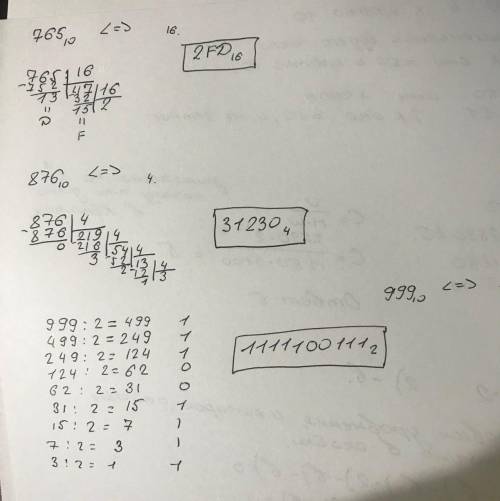 765₁₀ <=> 16.
2FD₁₆
765 | 16
- 752 | 47 | 16
13 32 | 2
" 15
D "
F
876₁₀ <=> 4.
31230₄
876 | 4
- 876 | 219 | 4
0 216 | 54 | 4
3 52 | 13 | 4
2 12 | 3
1
999₁₀ <=>
999 : 2 = 499 1
499 : 2 = 249 1
1111100111₂
249 : 2 = 124 1
124 : 2 = 62 0
62 : 2 = 31 0
31 : 2 = 15 1
15 : 2 = 7 1
7 : 2 = 3 1
3 : 2 = 1 1